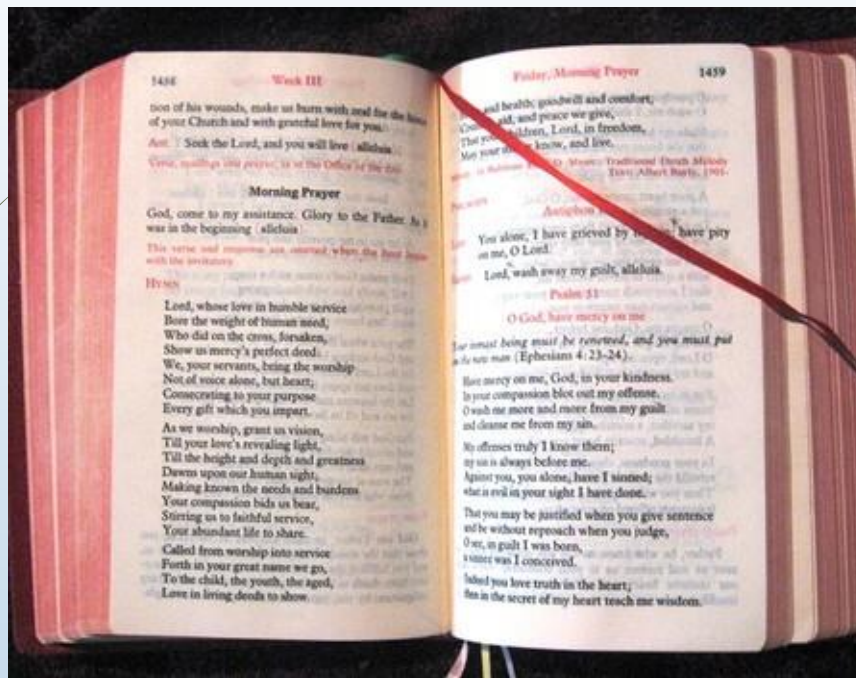 1458 Week III
tion of his wounds, make us burn with zeal for the honor
of your Church and with grateful love for you.
Ant. Seek the Lord, and you will live alleluia
Verse, readings and prayer, as in the Office of the day
Morning Prayer
God, come to my assistance. Glory to the Father. As it
was in the beginning alleluia
This verse and response are omitted when the hour begins
with the invitatory.
HYMN
Lord, whose love in humble service
Bore the weight of human need,
Who did on the cross, forsaken,
Show us mercy's perfect deed:
We, your servants, bring the worship
Not of voice alone, but heart;
Consecrating to your purpose
Every gift which you impart.
As we worship, grant us vision,
Till your love's revealing light,
Till the height and depth and greatness
Dawns upon our human sight;
Making known the needs and burdens
Your compassion bids us bear,
Stirring us to faithful service,
Your abundant life to share.
Called from worship into service
Forth in your great name we go,
To the child, the youth, the aged,
Love in living deeds to show.
Friday, Morning Prayer 1459
and health; goodwill and comfort,
aid, and peace we give,
That your children, Lord, in freedom,
May your know, and live.
Traditional Dutch Melody
Text: Albert Bayly, 1901-
PSALMODY
Antiphon
You alone, I have grieved by have pity
on me, O Lord.
Lord, wash away my guilt, alleluia.
Psalm 51
O God, have mercy on me
Your inmost being must be renewed, and you must put
on the new man (Ephesians 4:23-24).
Have mercy on me, God, in your kindness.
In your compassion blot out my offense.
O wash me more and more from my guilt
and cleanse me from my sin.
My offenses truly I know them;
my sin is always before me.
Against you, you alone, have I sinned;
what is evil in your sight I have done.
That you may be justified when you give sentence
and be without reproach when you judge,
O see, in guilt I was born,
a sinner was I conceived.
Indeed you love truth in the heart;
then in the secret of my heart teach me wisdom.